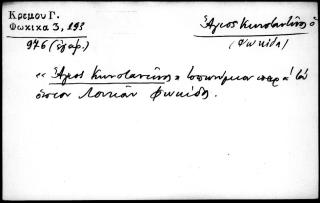 Κρεμου Γ.
Φωκικα 3, 193
976 (έγγρ.)
Άγιος Κωνσταντίνος ὁ
(Φωκίδα)
"Άγιος Κωνσταντίνος" τοπωνύμιον παρὰ τὸ
Φωκίδος.